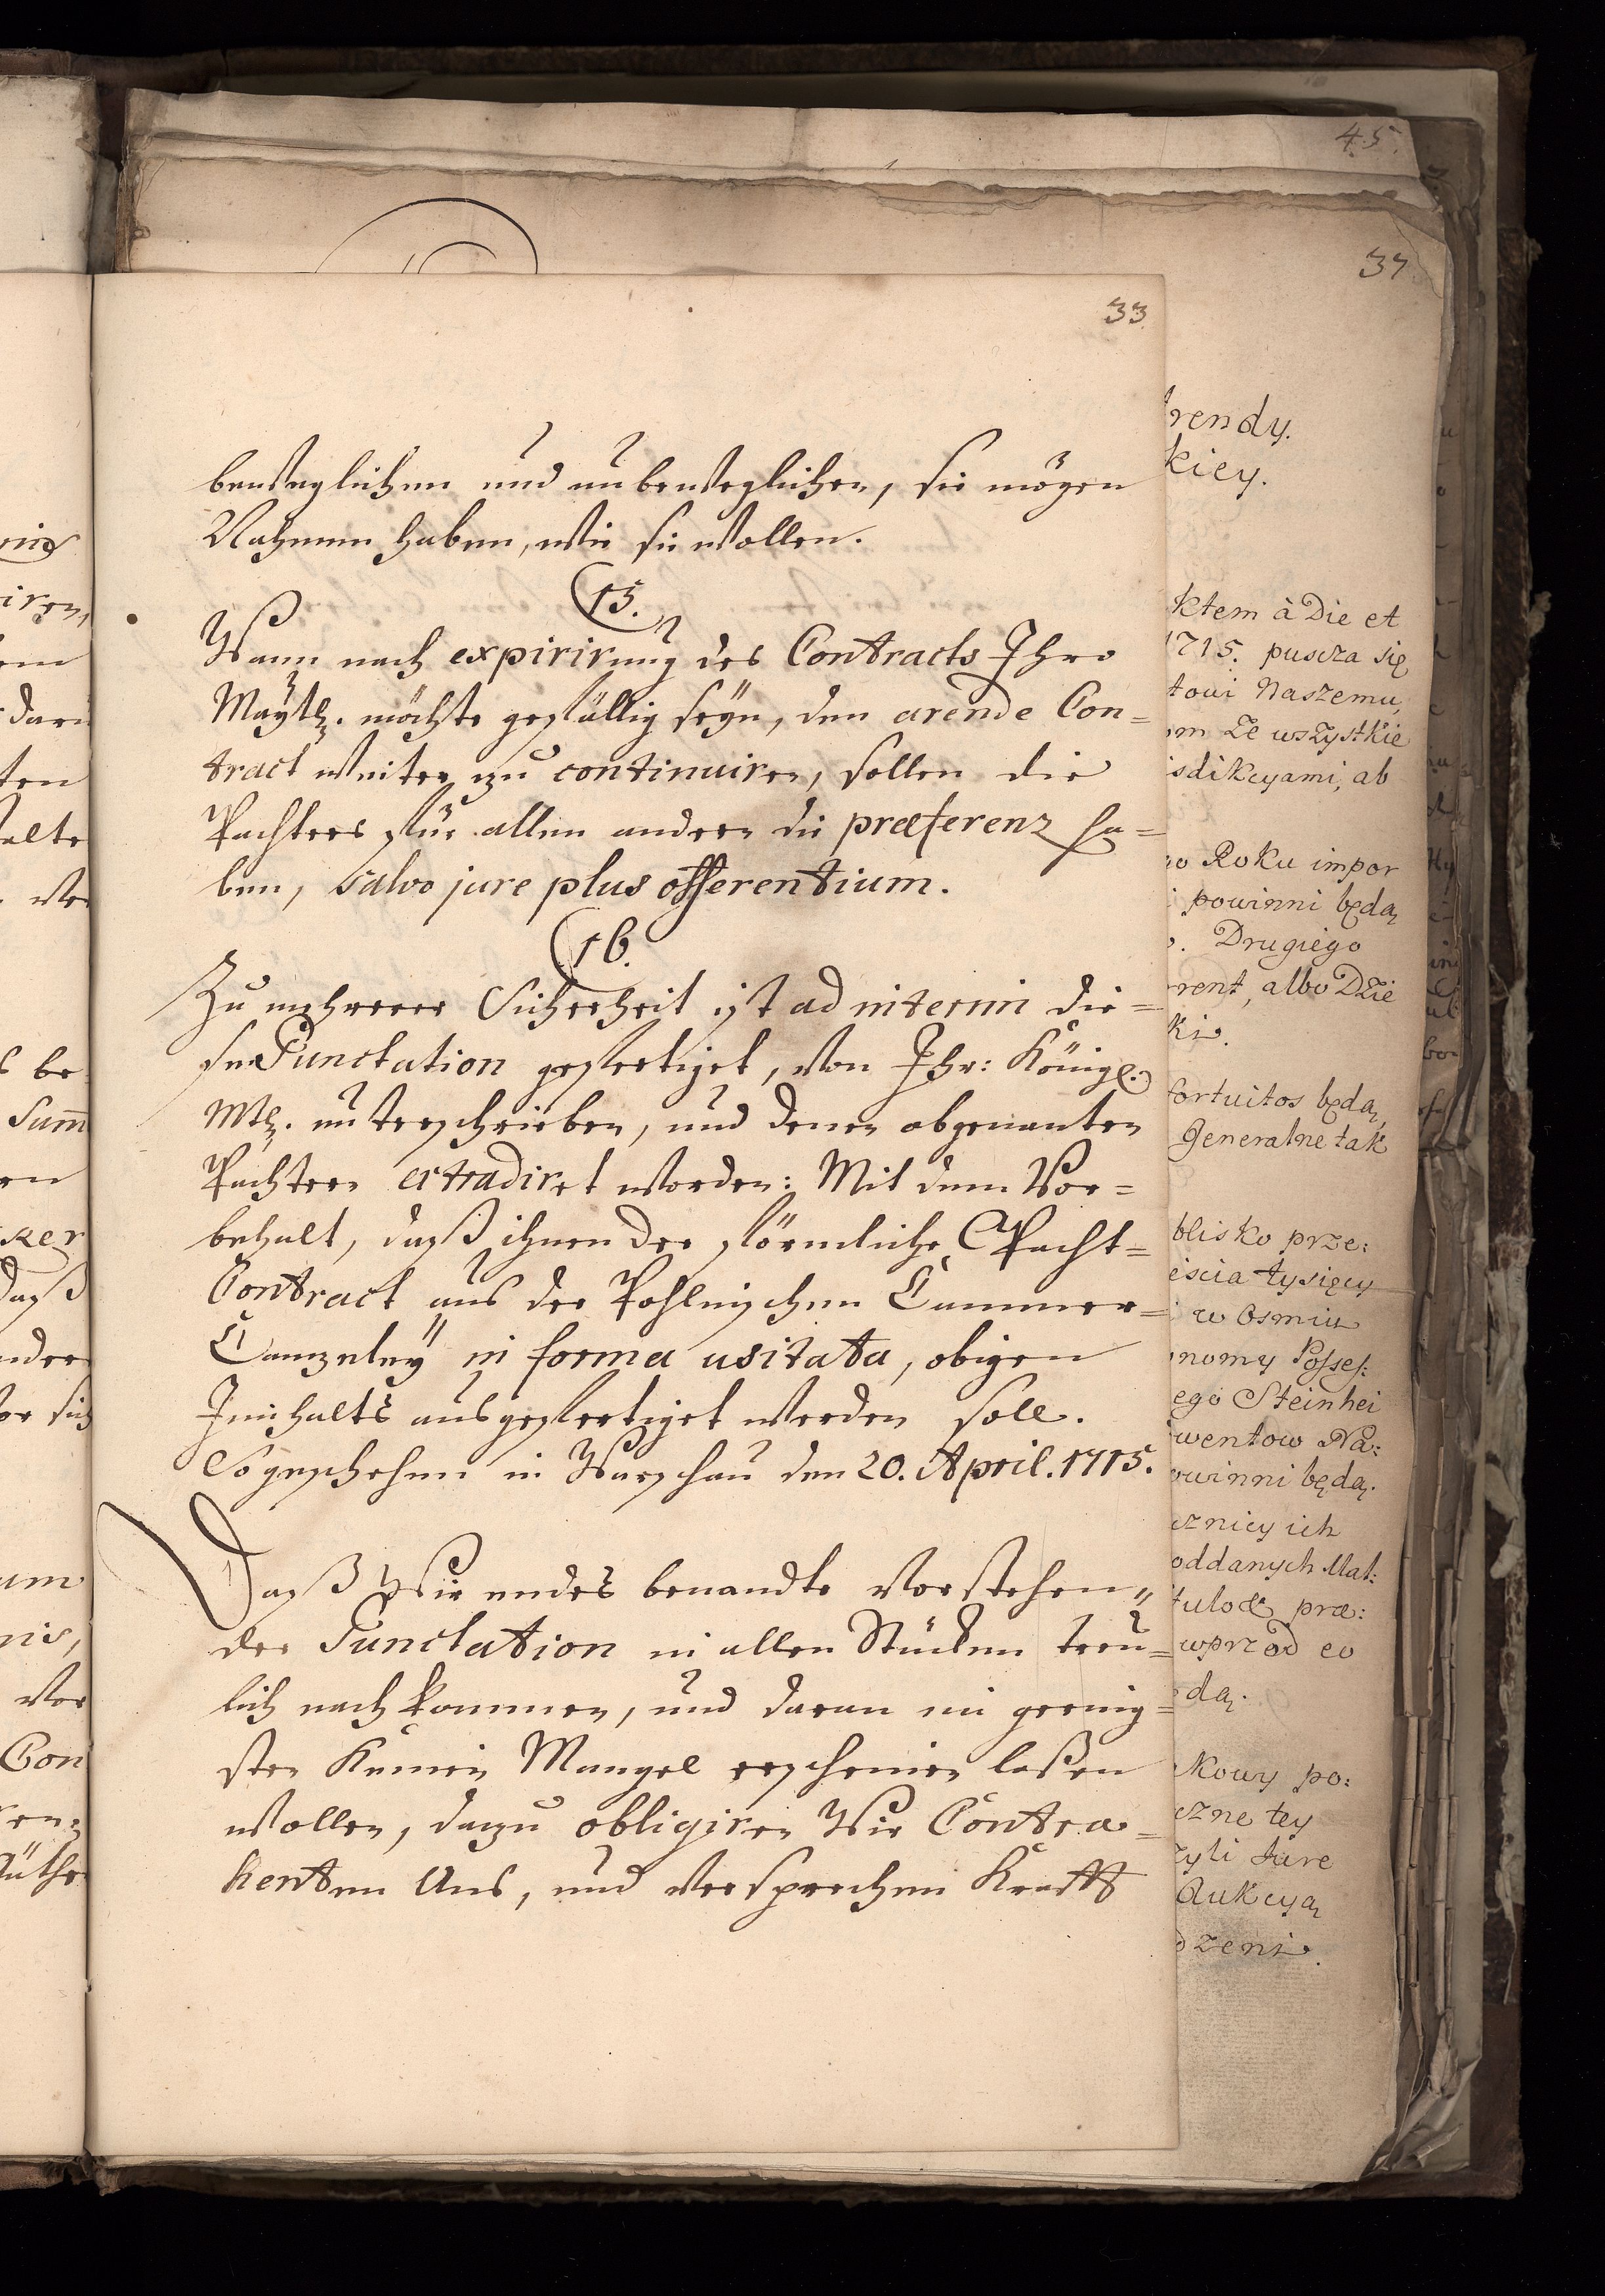 45.
37
33
beweglichen und unbeweglichen, sie mögen
Nahmen haben, wie sie wollen.
15.
Wann nach expirirung des Contracts Ihro
Maytt. möchte gefällig seyn, den arende Con=
tract weiter zu continuiren, sollen die
Pachters für allen andern die præferenz ha=
ben, salvo jure plus offerentium.
16.
Zu mehrerer Sicherheit ist ad interim die=
se Punctation gefertiget, von Ihr: Königl.
Mtt. unterschrieben, und denen obgenanten
Pachtern extradiret worden: Mit dem Vor=
behalt, daß ihnen der förmliche Pacht=
Contract aus der Pohlnischen Cammer=
Cantzeley in forma usitata, obigen
Innhalts ausgefertiget werden soll.
So geschehen in Warschau den 20. April. 1715.
Daß Wir endes benandte vorstehen„
der Punctation in allen Stücken treu=
lich nach kommen, und daran im gering=
sten keinen Mangel erscheinen laßen
wollen, dazu obligiren Wir Contra=
henten Uns, und versprechen Krafft
rendy.
kiey.
ktem à Die et
1715. puscza się
towi Naszemu,
om Ze wszystkie
isdikcyami, ab
o Roku impor
powinni będą
Drugiego
rent, albo Dzie
ki.
fortuitos będą,
Generalne tak
blisko prze:
eścia tysięcy
w Osmiu
onomy Posses:
ego Steinhei
wentow Na:
owinni będą.
cznicy ich
oddanych Mat:
tulo& præ:
wprzod eo
dą.
kowy po:
czne tey
zyli Jure
Aukcyą
dzeni.